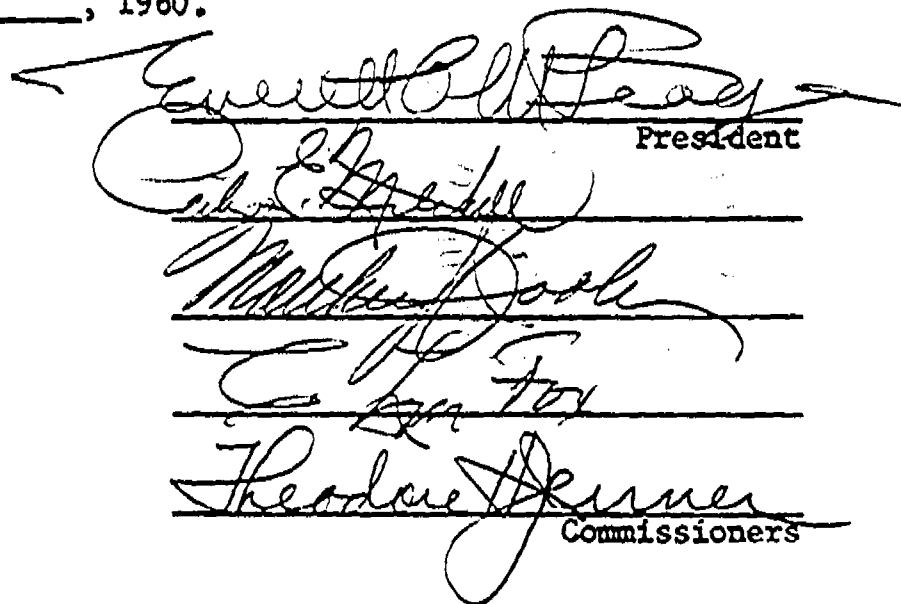 , 1960.
Everett C. McKeage
President
E.
C. Lyn Fox
Theodore H. Jenner
Commissioners